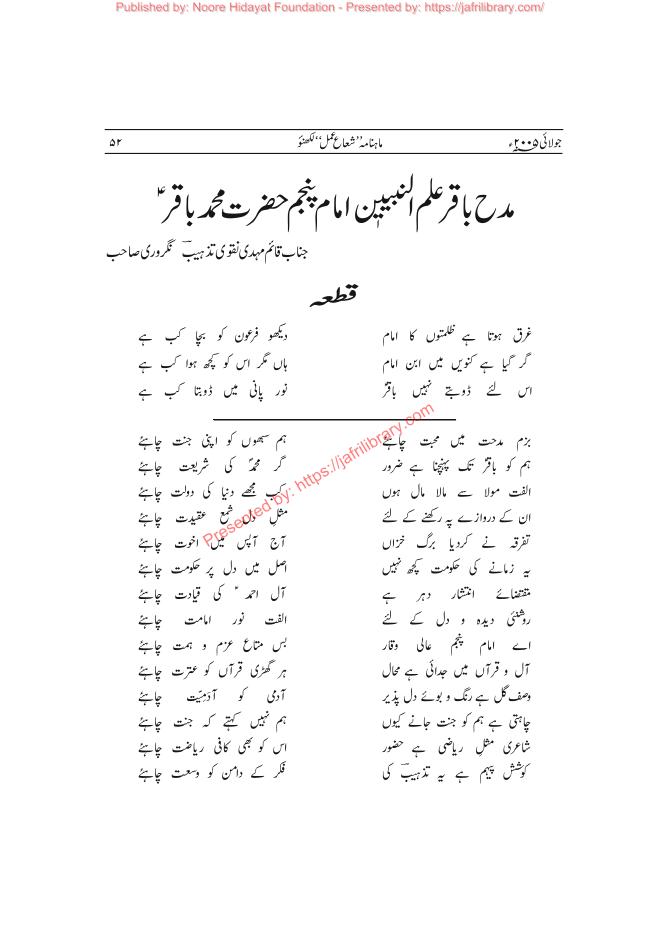 Published by: Noore Hidayat Foundation - Presented by: https://jafrilibrary.com/
جولائی ۲۰۰۵ء ماہنامہ ’’شعاع عمل‘‘ لکھنؤ ۵۲
مدح باقر علم النبیینؐ امام پنجم حضرت محمد باقرؑ
جناب قائم مہدی نقوی تذہیبؔ نگروری صاحب
قطعہ
غرق ہوتا ہے ظلمتوں کا امام دیکھو فرعون کو بچا کب ہے
گر گیا ہے کنویں میں ابن امام ہاں مگر اس کو کچھ ہوا کب ہے
اس لئے ڈوبتے نہیں باقرؑ نور پانی میں ڈوبتا کب ہے
بزم مدحت میں محبت چاہئے ہم سبھوں کو اپنی جنت چاہئے
ہم کو باقرؑ تک پہنچنا ہے ضرور گر محمدؐ کی شریعت چاہئے
الفت مولا سے مالا مال ہوں کب مجھے دنیا کی دولت چاہئے
ان کے دروازے پہ رکھنے کے لئے مثلِ دل شمع عقیدت چاہئے
تفرقہ نے کردیا برگ خزاں آج آپس میں اخوت چاہئے
یہ زمانے کی حکومت کچھ نہیں اصل میں دل پر حکومت چاہئے
مقتضائے انتشار دہر ہے آل احمدؐ کی قیادت چاہئے
روشنئی دیدہ و دل کے لئے الفت نور امامت چاہئے
اے امام پنجم عالی وقار بس متاع عزم و ہمت چاہئے
آل و قرآں میں جدائی ہے محال ہر گھڑی قرآں کو عترت چاہئے
وصف گل ہے رنگ و بوئے دل پذیر آدمی کو آدمِیّت چاہئے
چاہتی ہے ہم کو جنت جانے کیوں ہم نہیں کہتے کہ جنت چاہئے
شاعری مثلِ ریاضی ہے حضور اس کو بھی کافی ریاضت چاہئے
کوشش پیہم ہے یہ تذہیبؔ کی فکر کے دامن کو وسعت چاہئے
Presented by: https://jafrilibrary.com